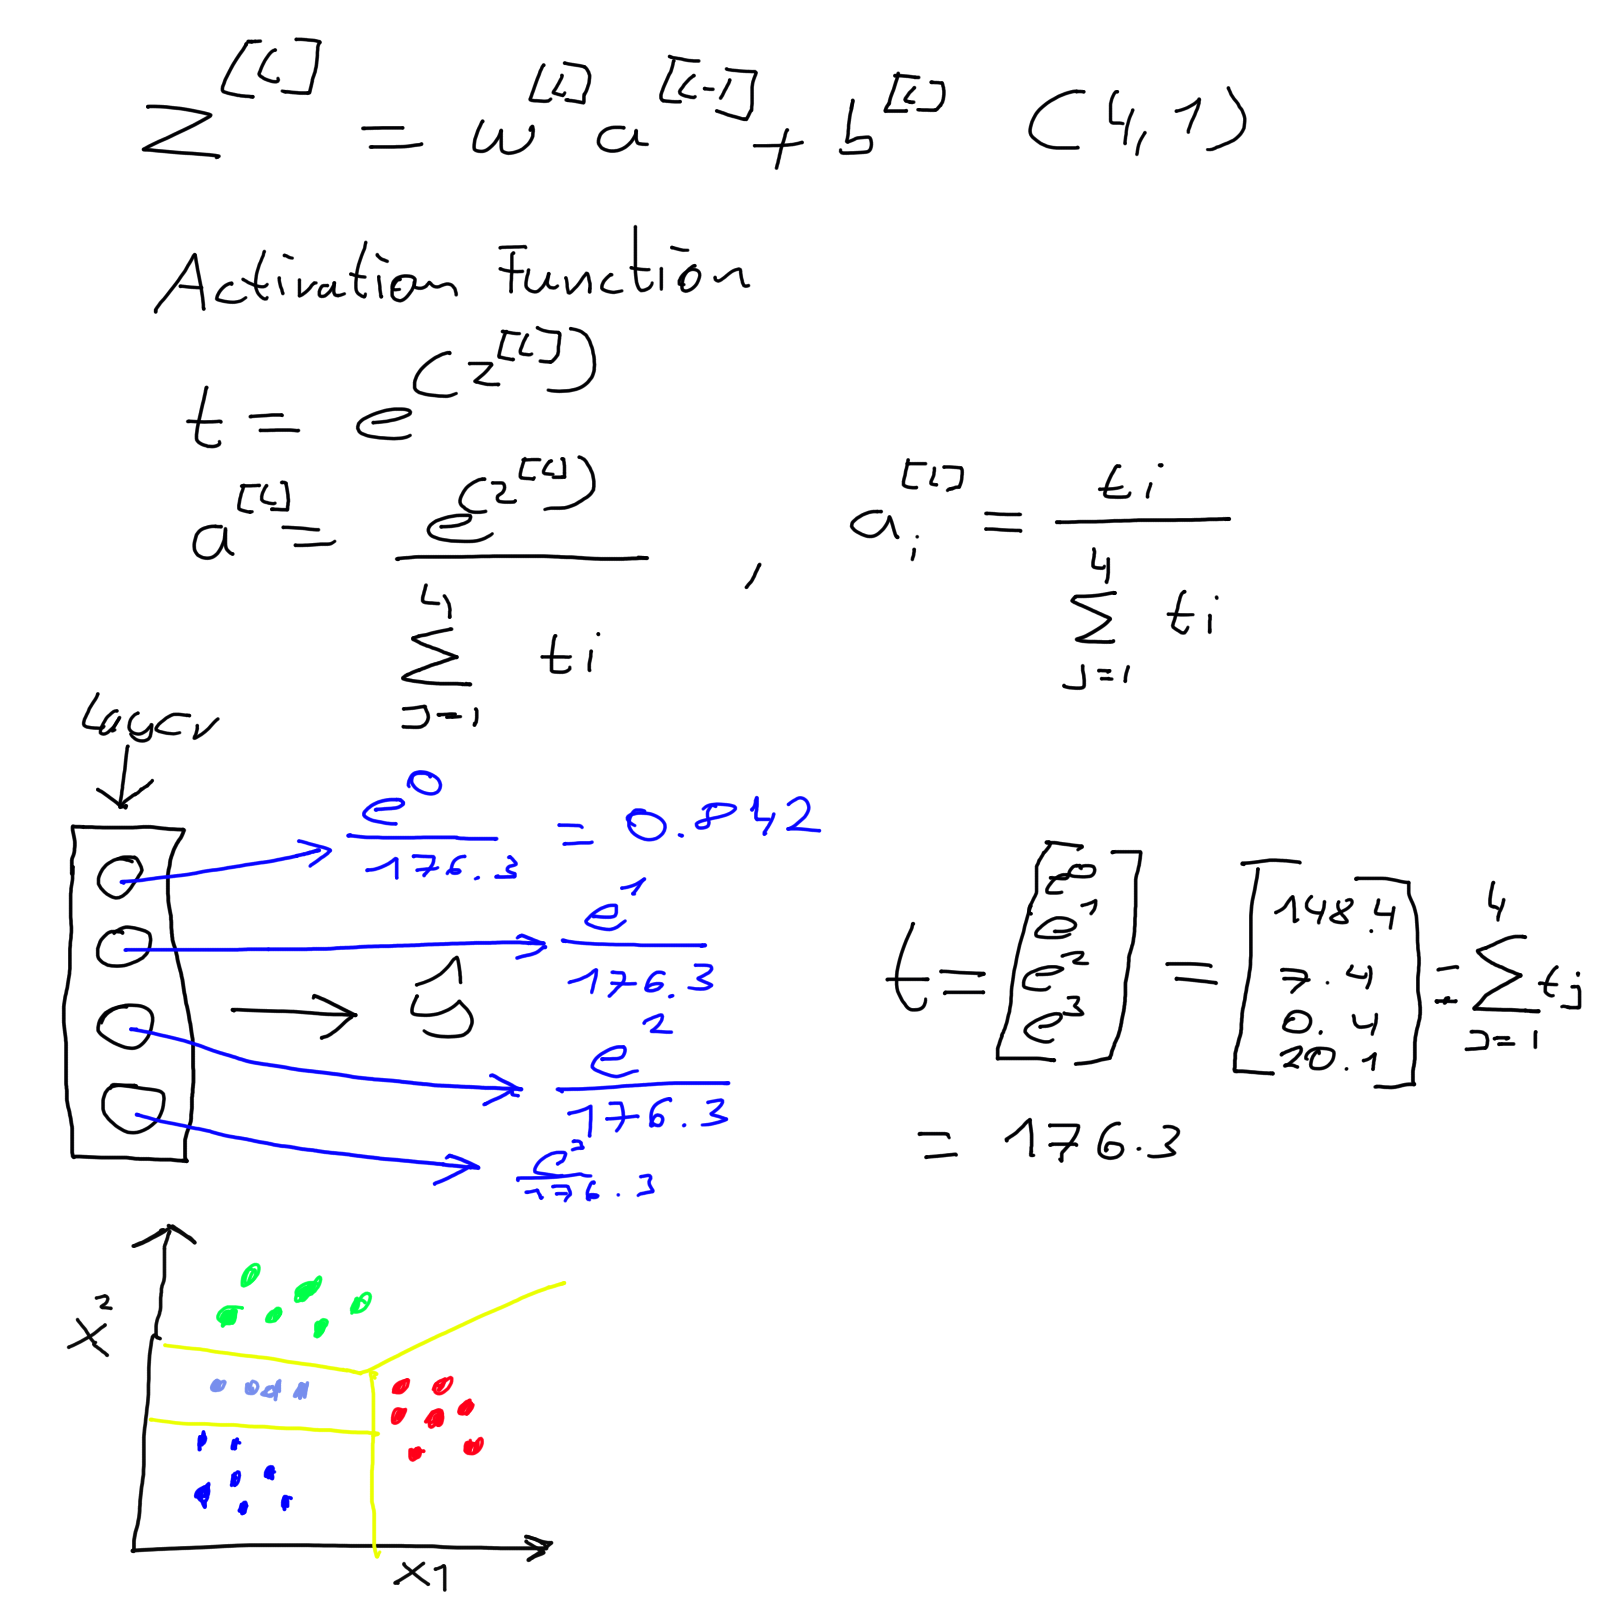 z^[L] = w^[L] a^[L-1] + b^[L] (4,1)
Activation Function
t = e^(z^[L])
a^[L] = e^(z^[L]) / ∑_{J=1}^{4} ti , a_i^[L] = ti / ∑_{J=1}^{4} ti
Layer
e^0 / 176.3 = 0.842
e^1 / 176.3
ŷ
e^2 / 176.3
e^3 / 176.3
t = [e^0 e^1 e^2 e^3] = [148.4 7.4 0.4 20.1] = ∑_{J=1}^{4} tj
= 176.3
x^2
x1